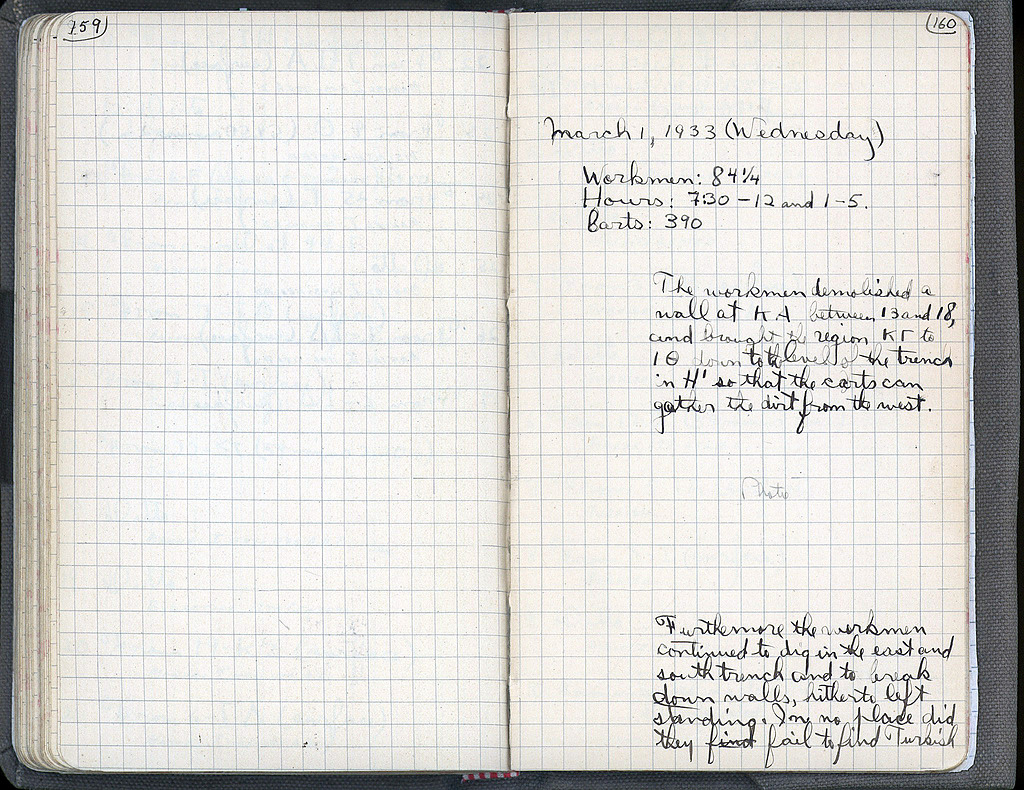 159
160
March 1, 1933 (Wednesday)
Workmen: 84 1/4
Hours: 7:30 - 12 and 1 - 5.
Carts: 390
The workmen demolished a
wall at ΚΔ between 13 and 18,
and brought the region ΚΓ to
ΙΘ down to the level of the trench
in H' so that the carts can
gather the dirt from the west.
Photo
Furthermore the workmen
continued to dig in the east and
south trench and to break
down walls, hitherto left
standing. In no place did
they find fail to find Turkish